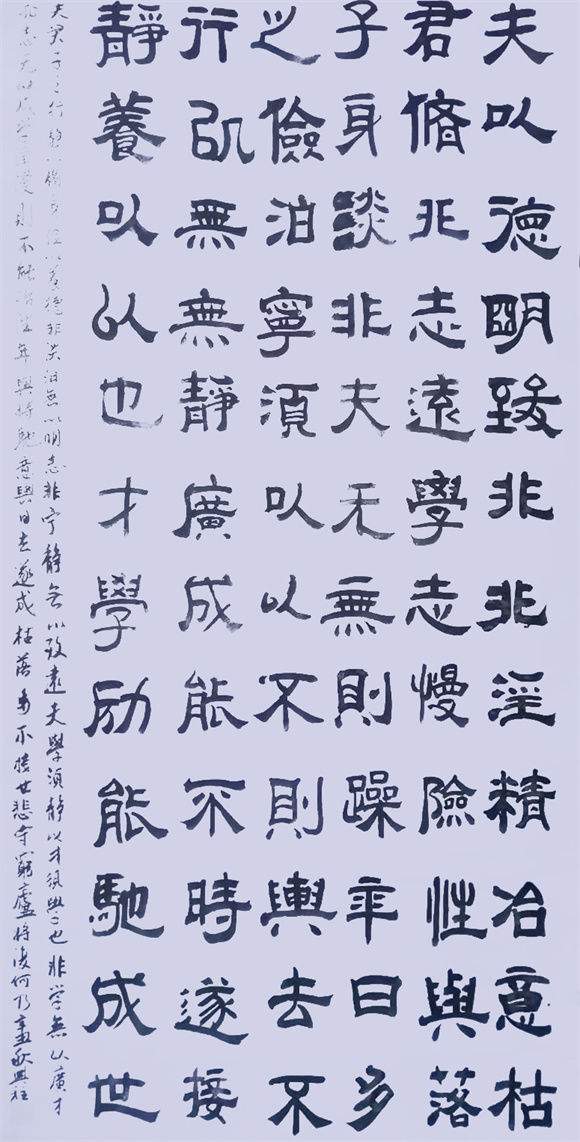 夫君子之行靜
以脩身儉以養
德非淡泊無以
明志非寧無以
致遠夫須靜也
非學无以廣才
非志無以成學
淫慢則不能励
精險躁則不能
冶性年與時馳
意與日去遂成
枯落多不接世
夫君子之行静以脩身俭以養德非淡泊無以明志非宁静無以致遠夫學須静以才須學也非学無以廣才
非志无以成学慢則不能冶性年與時馳意與日去遂成枯落多不接世悲守窮廬將復何及